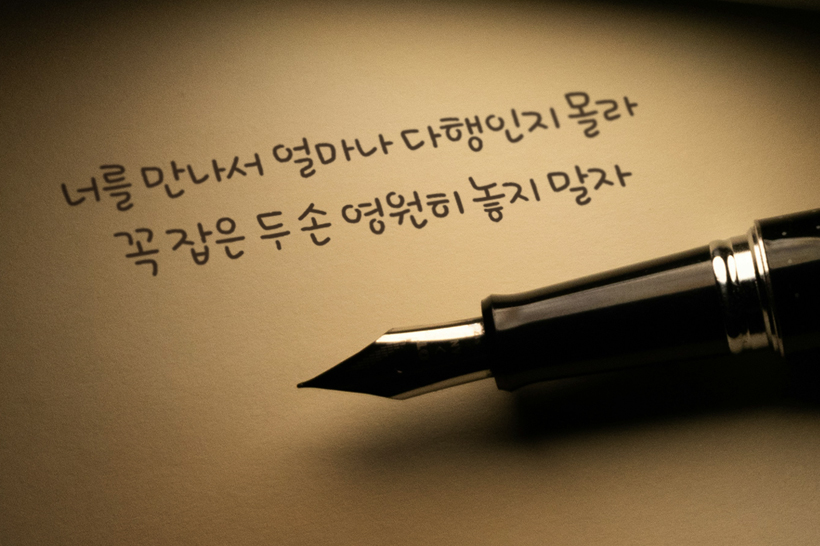 너를 만나서 얼마나 다행인지 몰라
꼭 잡은 두 손 영원히 놓지 말자